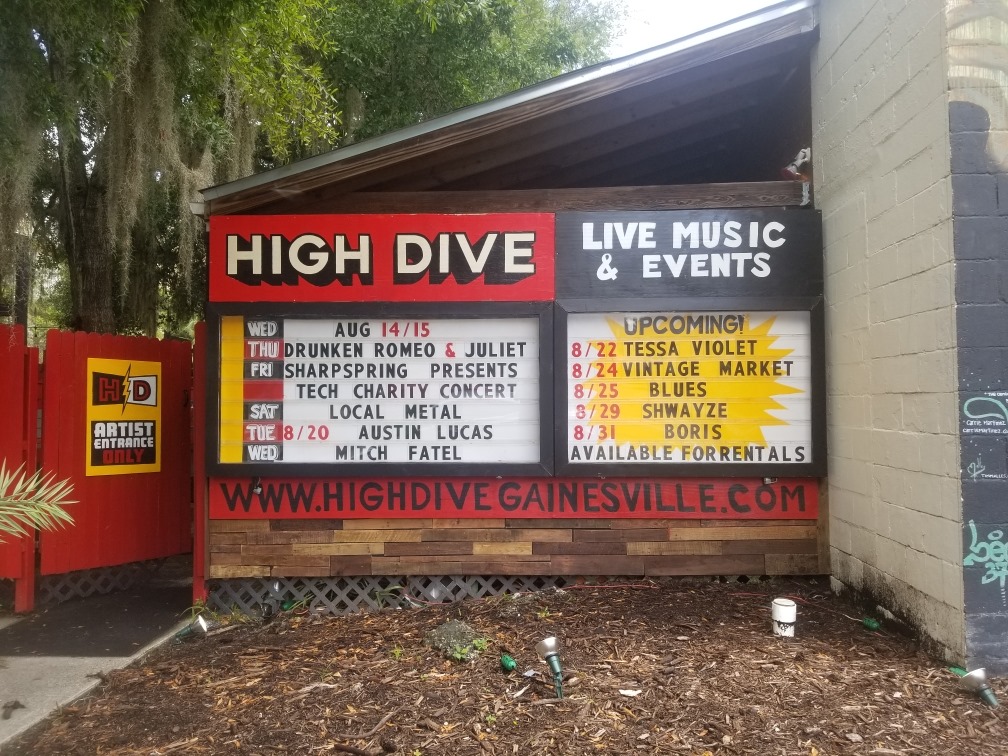 HIGH DIVE
LIVE MUSIC
& EVENTS
WED AUG 14/15
THU DRUNKEN ROMEO & JULIET
FRI SHARPSPRING PRESENTS
TECH CHARITY CONCERT
SAT LOCAL METAL
TUE 8/20 AUSTIN LUCAS
WED MITCH FATEL
UPCOMING!
8/22 TESSA VIOLET
8/24 VINTAGE MARKET
8/25 BLUES
8/29 SHWAYZE
8/31 BORIS
AVAILABLE FOR RENTALS
WWW.HIGHDIVEGAINESVILLE.COM
HD
ARTIST
ENTRANCE
ONLY